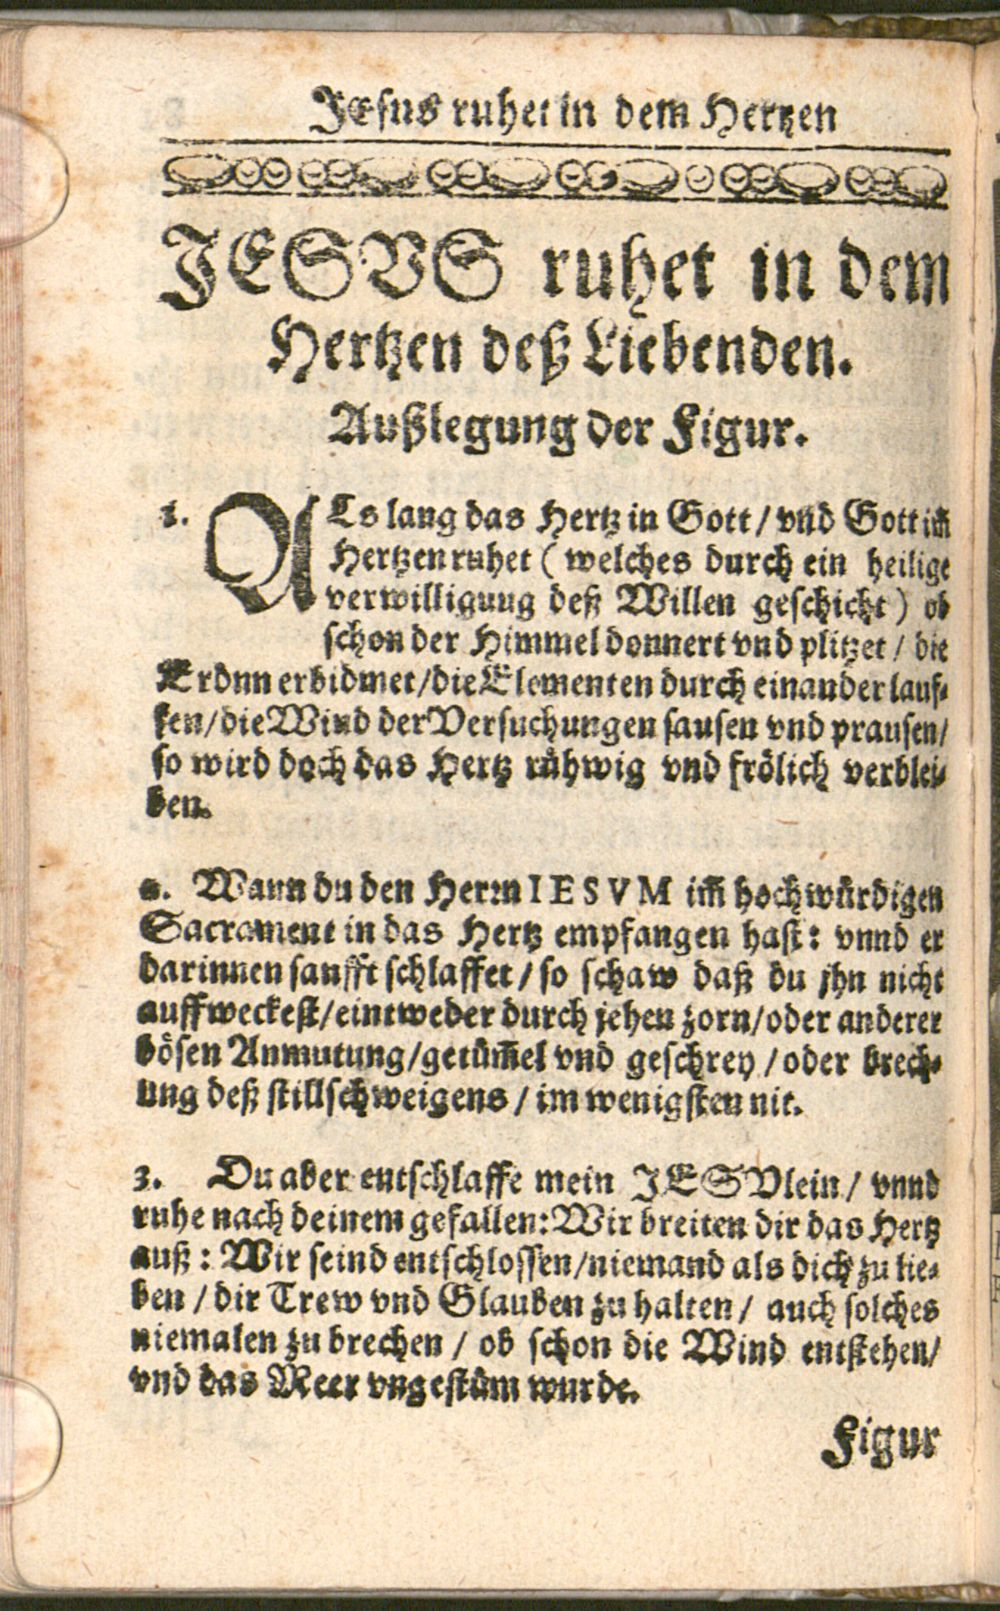 JEsus ruhet in dem Hertzen
JESVS ruhet in dem
Hertzen deß Liebenden.
Außlegung der Figur.
1. ALs lang das Hertz in Gott / vnd Gott im̃
Hertzen ruhet ( welches durch ein heilige
verwilligung deß Willen geschicht ) ob
schon der Himmel donnert vnd plitzet / die
Erdnn erbidmet / die Elementen durch einander lauf-
fen / die Wind der Versuchungen sausen vnd prausen /
so wird doch das Hertz růhwig vnd frölich verblei-
ben.
2. Wann du den Herrn IESVM im̃ hochwürdigen
Sacrament in das Hertz empfangen hast: vnnd er
darinnen sanfft schlaffet / so schaw daß du jhn nicht
auffweckest / eintweder durch jehen zorn / oder anderer
bösen Anmutung / getüm̃el vnd geschrey / oder brech-
ung deß stillschweigens / im wenigsten nit.
3. Du aber entschlaffe mein JESVlein / vnnd
ruhe nach deinem gefallen: Wir breiten dir das Hertz
auß: Wir seind entschlossen / niemand als dich zu lie-
ben / dir Trew vnd Glauben zu halten / auch solches
niemalen zu brechen / ob schon die Wind entstehen /
vnd das Meer vngestüm wurde.
Figur